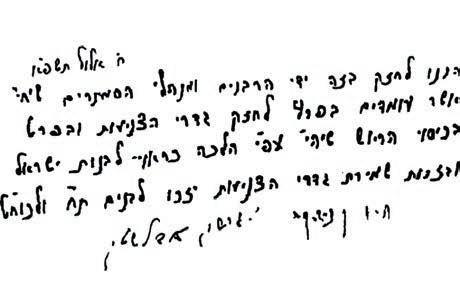 ח' אלול תשפ"א
הננו לחזק בזה ידי הרבנים ומנהלי הסמינרים שיחי'
אשר עומדים בפרץ לחזק גדרי הצניעות ובפרט
בכיסוי הריש שיהי' עפ"י הלכה כראוי לבנות ישראל
ובזכות שמירת גדרי הצניעות יזכו לבנים ת"ח ולכוח"ט
י. גרשון אדלשטיין